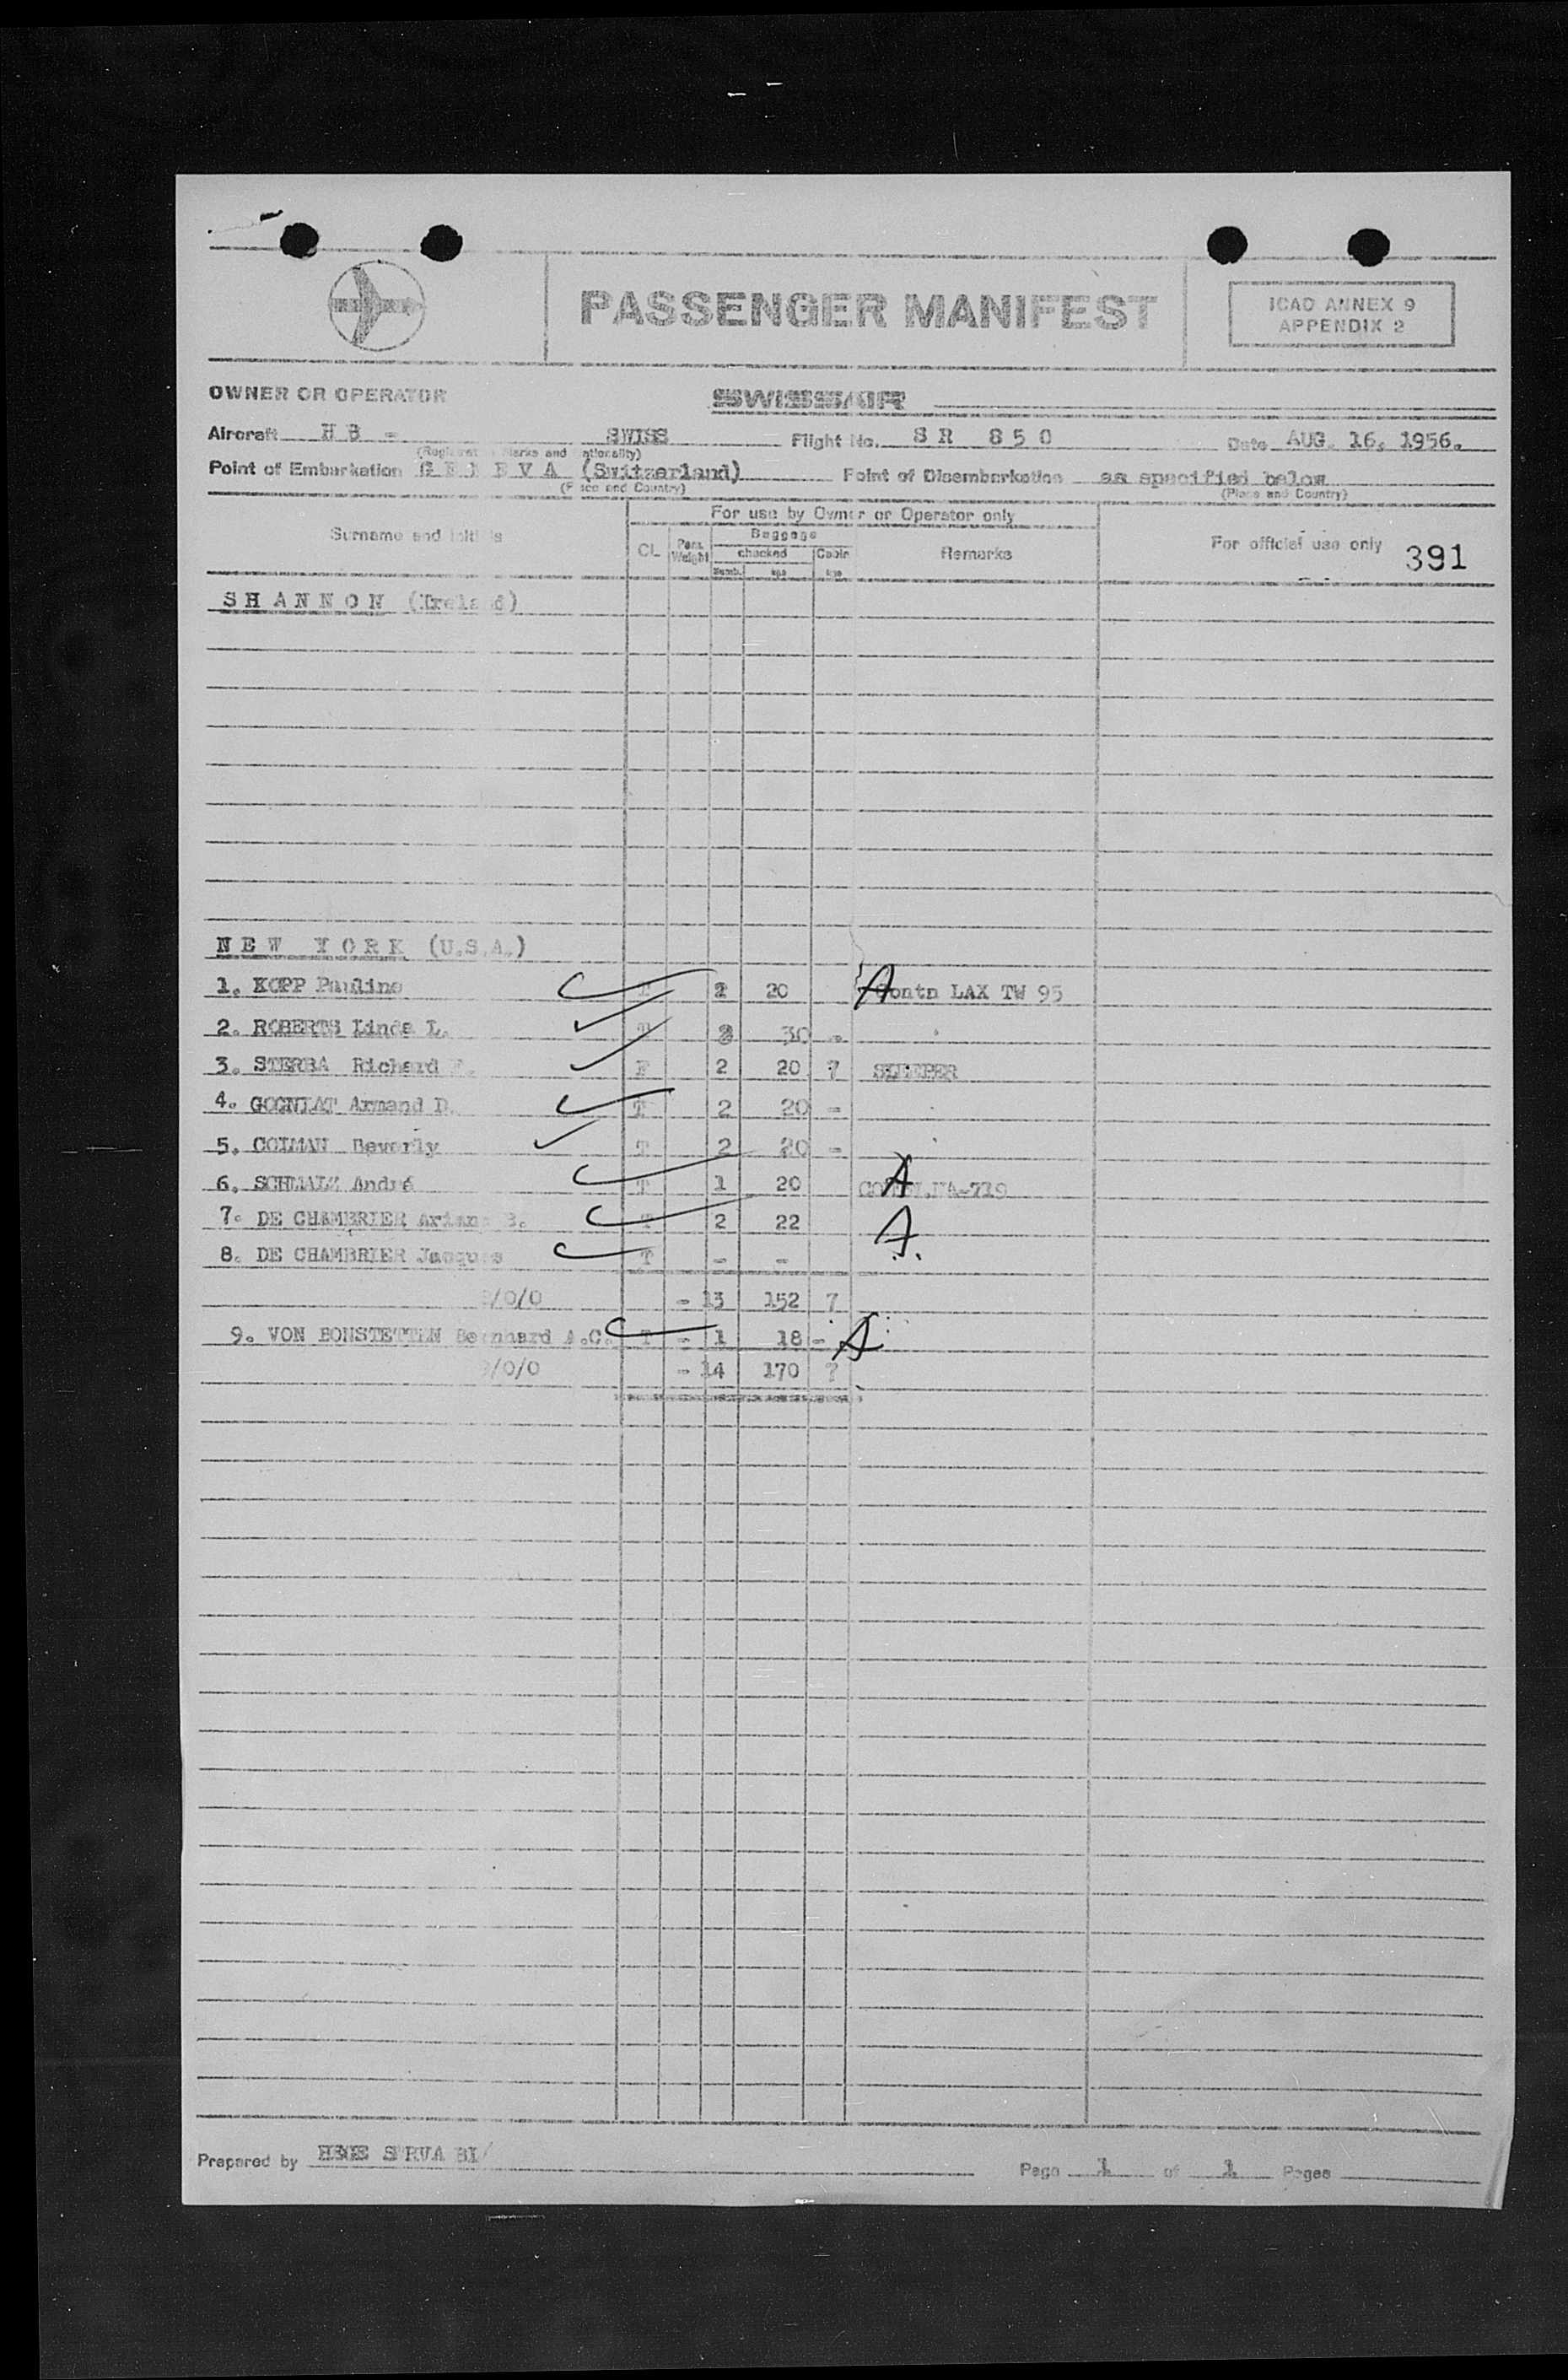 PASSENGER MANIFEST
ICAO ANNEX 9
APPENDIX 2
OWNER OR OPERATOR SWISSAIR
Aircraft H B - SWISS Flight No. S R 8 5 0 Date AUG. 16, 1956.
(Registration Marks and Nationality)
Point of Embarkation G E N E V A (Switzerland) Point of Disembarkation as specified below
(Place and Country) (Place and Country)
For use by Owner or Operator only
Surname and Initials CL Pass. Weight Baggage checked Numb. kgs Cabin kgs Remarks For official use only 391
S H A N N O N (Ireland)
N E W Y O R K (U.S.A.)
1. KOPP Pauline 20 A Contn LAX TW 95
2. ROBERTS Linda L. T 30 -
3. STERBA Richard F 2 20 7 SLEEPER
4. GOGNIAT Armand D. T 2 20 -
5. COLMAN Beverly T 2 20 -
6. SCHMALZ André T 1 20 A
7. DE CHAMBRIER B. T 2 22 A.
8. DE CHAMBRIER Jacques T - -
/0/0 - 13 152 7
9. VON BONSTETTEN Bernhard A.C. T - 1 18 - A
/0/0 - 14 170 7
Prepared by
Page 1 of 1 Pages